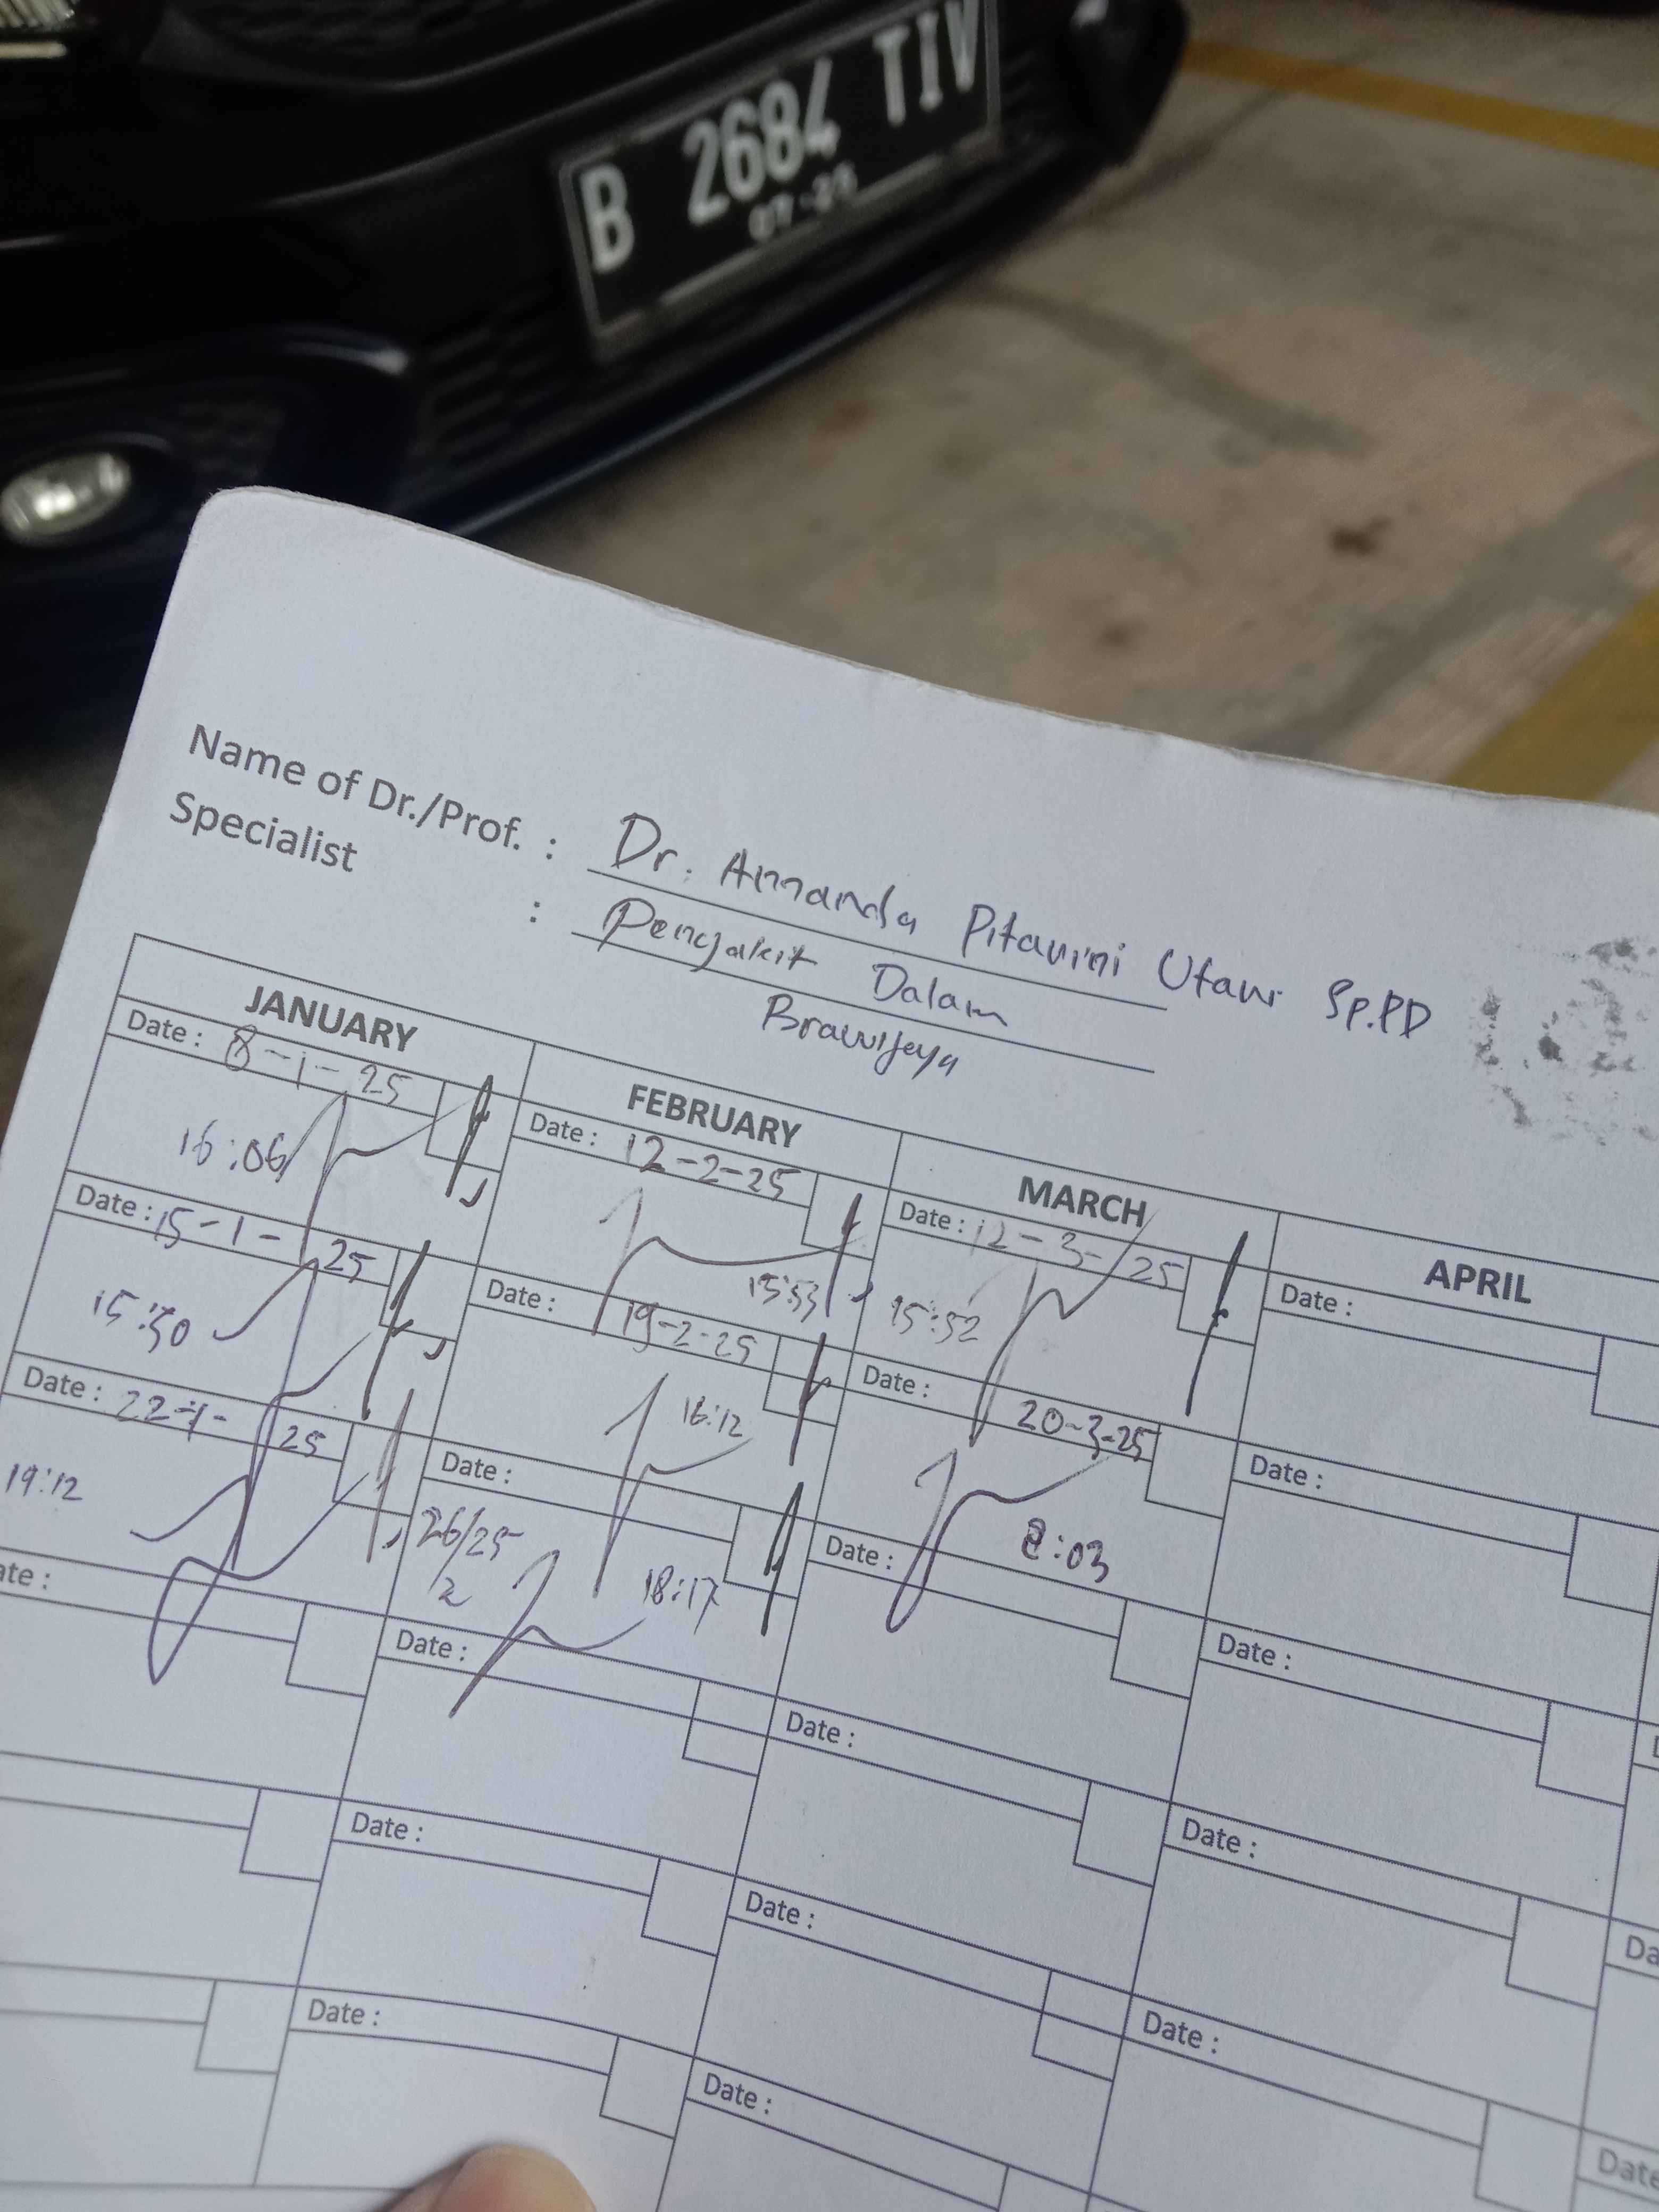 B 2684 TIV
Name of Dr./Prof. : Dr. Amanda Pitarini Utami Sp.PD
Specialist : Penyakit Dalam
Brawijaya
JANUARY
FEBRUARY
MARCH
APRIL
Date : 8-1-25
16:06
Date : 12-2-25
15:53
Date : 12-3-25
15:52
Date :
Date : 15-1-25
15:50
Date : 19-2-25
16:12
Date : 20-3-25
8:03
Date :
Date : 22-1-25
19:12
Date :
26/25
2
18:17
Date :
Date :
ate :
Date :
Date :
Date :
Date :
Date :
Date :
Date :
Date :
Da
Date